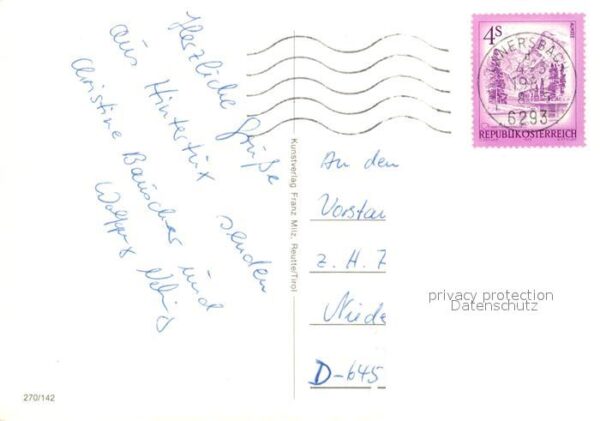 Herzliche Grüße
aus Hintertux senden
Christine Bauscher und
Wolfgang
Kunstverlag Franz Milz, Reutte/Tirol
270/142
4S
REPUBLIK ÖSTERREICH
6293
An den
Vorstan
z. H. 
Niede
D-645
privacy protection
Datenschutz